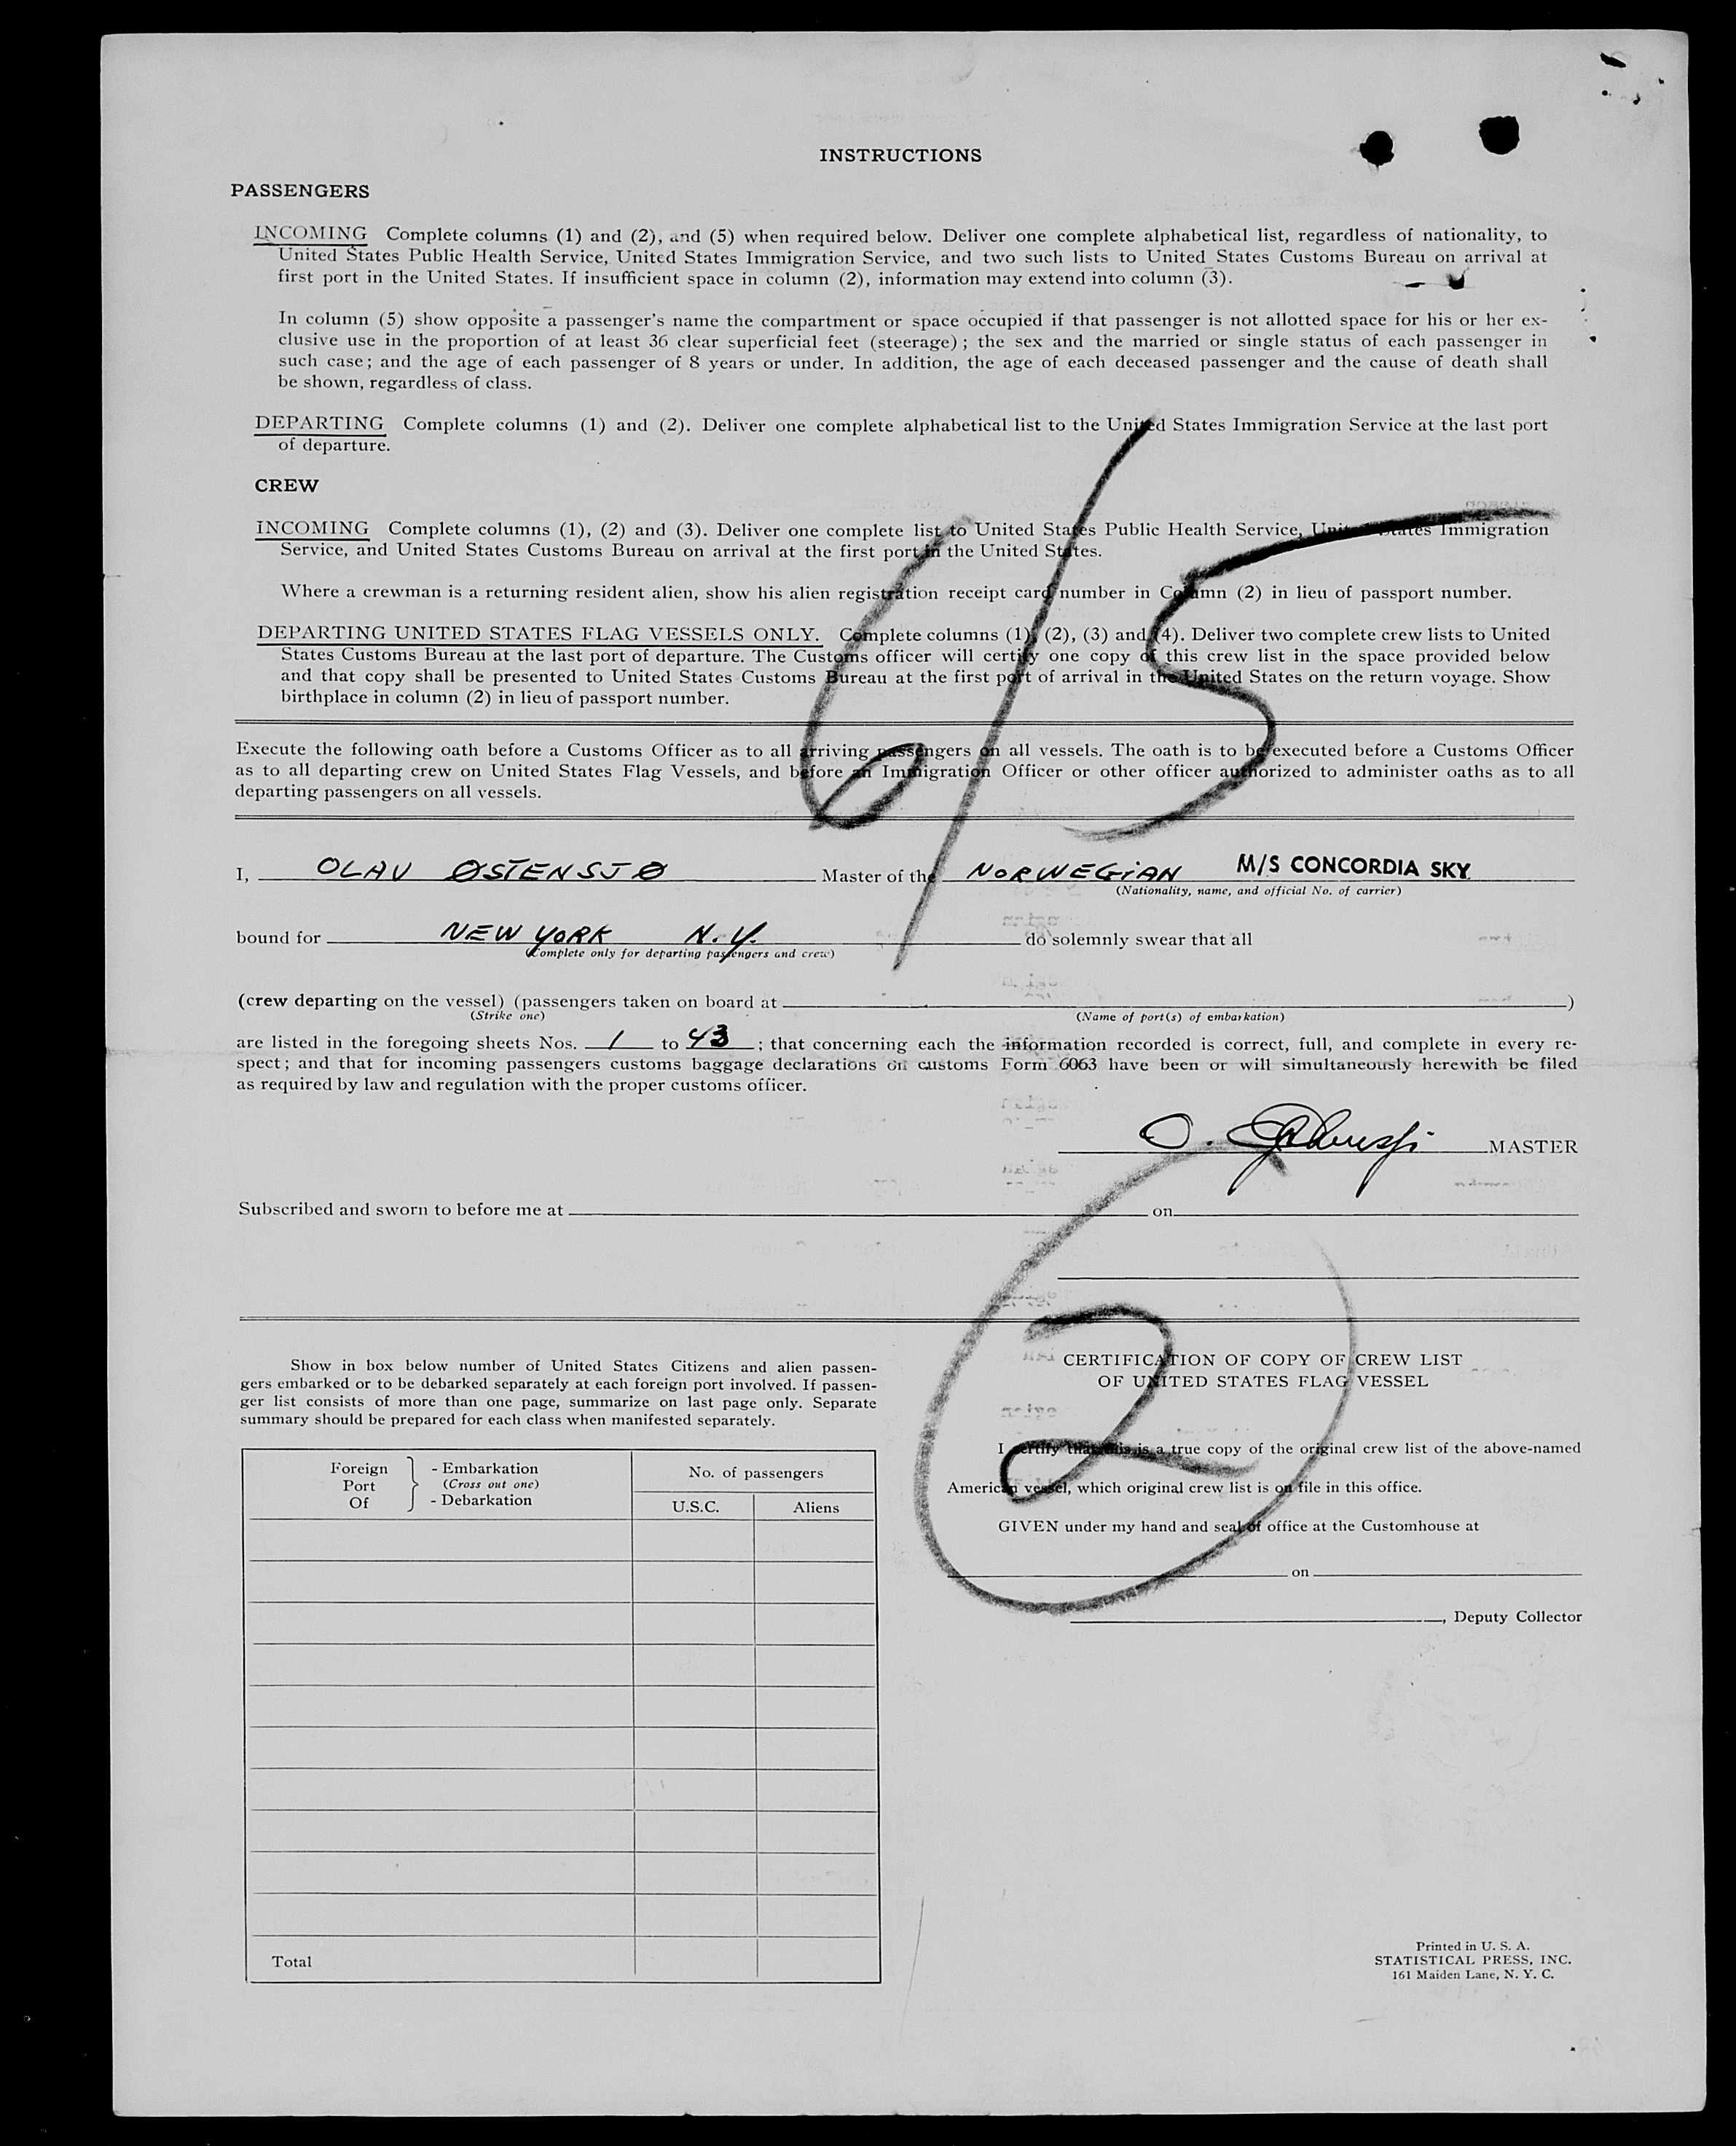 INSTRUCTIONS
PASSENGERS
INCOMING Complete columns (1) and (2), and (5) when required below. Deliver one complete alphabetical list, regardless of nationality, to
United States Public Health Service, United States Immigration Service, and two such lists to United States Customs Bureau on arrival at
first port in the United States. If insufficient space in column (2), information may extend into column (3).
In column (5) show opposite a passenger's name the compartment or space occupied if that passenger is not allotted space for his or her ex-
clusive use in the proportion of at least 36 clear superficial feet (steerage); the sex and the married or single status of each passenger in
such case; and the age of each passenger of 8 years or under. In addition, the age of each deceased passenger and the cause of death shall
be shown, regardless of class.
DEPARTING Complete columns (1) and (2). Deliver one complete alphabetical list to the United States Immigration Service at the last port
of departure.
CREW
INCOMING Complete columns (1), (2) and (3). Deliver one complete list to United States Public Health Service, United States Immigration
Service, and United States Customs Bureau on arrival at the first port in the United States.
Where a crewman is a returning resident alien, show his alien registration receipt card number in Column (2) in lieu of passport number.
DEPARTING UNITED STATES FLAG VESSELS ONLY. Complete columns (1), (2), (3) and (4). Deliver two complete crew lists to United
States Customs Bureau at the last port of departure. The Customs officer will certify one copy of this crew list in the space provided below
and that copy shall be presented to United States Customs Bureau at the first port of arrival in the United States on the return voyage. Show
birthplace in column (2) in lieu of passport number.
6/5
Execute the following oath before a Customs Officer as to all arriving passengers on all vessels. The oath is to be executed before a Customs Officer
as to all departing crew on United States Flag Vessels, and before an Immigration Officer or other officer authorized to administer oaths as to all
departing passengers on all vessels.
I, OLAV ØSTENSJØ Master of the NORWEGIAN M/S CONCORDIA SKY
(Nationality, name, and official No. of carrier)
bound for NEW YORK N.Y. do solemnly swear that all
(Complete only for departing passengers and crew)
(crew departing on the vessel) (passengers taken on board at )
(Strike one) (Name of port(s) of embarkation)
are listed in the foregoing sheets Nos. 1 to 43 ; that concerning each the information recorded is correct, full, and complete in every re-
spect; and that for incoming passengers customs baggage declarations on customs Form 6063 have been or will simultaneously herewith be filed
as required by law and regulation with the proper customs officer.
O. MASTER
Subscribed and sworn to before me at on
2
Show in box below number of United States Citizens and alien passen-
gers embarked or to be debarked separately at each foreign port involved. If passen-
ger list consists of more than one page, summarize on last page only. Separate
summary should be prepared for each class when manifested separately.
Foreign Port Of } - Embarkation (Cross out one) - Debarkation
No. of passengers
U.S.C. Aliens
Total
CERTIFICATION OF COPY OF CREW LIST
OF UNITED STATES FLAG VESSEL
I certify that this is a true copy of the original crew list of the above-named
American vessel, which original crew list is on file in this office.
GIVEN under my hand and seal of office at the Customhouse at
on
, Deputy Collector
Printed in U. S. A.
STATISTICAL PRESS, INC.
161 Maiden Lane, N. Y. C.